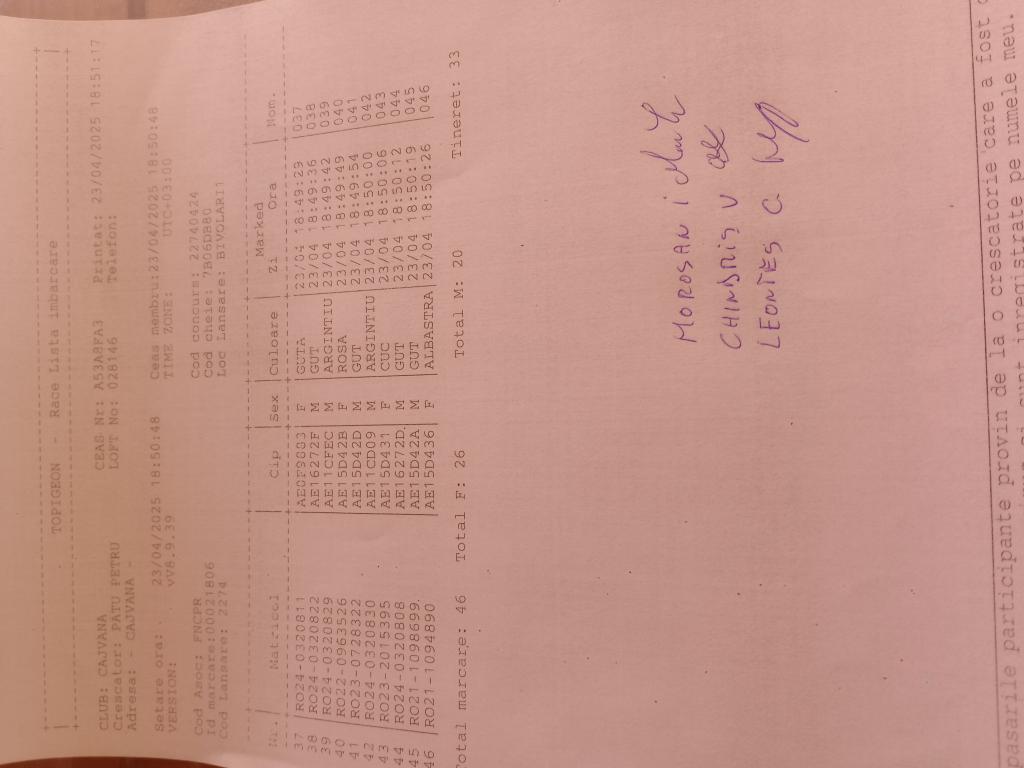 TOPIGEON - Race Lista imbarcare
CLUB: CAJVANA CEAS Nr: A53A8FA3 Printat: 23/04/2025 18:51:17
Crescator: PATU PETRU LOFT No: 028146 Telefon:
Adresa: - CAJVANA -
Setare ora: 23/04/2025 18:50:48 Ceas membru:23/04/2025 18:50:48
VERSION: vV8.9.39 TIME ZONE: UTC+03:00
Cod Asoc: FNCPR Cod concurs: 22740424
Id marcare:00021806 Cod cheie: 7B06DB80
Cod Lansare: 2274 Loc Lansare: BIVOLARI1
Marked
Nr. | Matricol | Cip | Sex | Culoare | Zi Ora | Nom.
37 |RO24-0320811 |AE0F9803 | F |GUTA |23/04 18:49:29 |037
38 |RO24-0320822 |AE16272F | M |GUT |23/04 18:49:36 |038
39 |RO24-0320829 |AE11CFEC | M |ARGINTIU |23/04 18:49:42 |039
40 |RO22-0963526 |AE15D42B | F |ROSA |23/04 18:49:49 |040
41 |RO23-0728322 |AE15D42D | M |GUT |23/04 18:49:54 |041
42 |RO24-0320830 |AE11CD09 | M |ARGINTIU |23/04 18:50:00 |042
43 |RO23-2015395 |AE15D431 | F |CUC |23/04 18:50:06 |043
44 |RO24-0320808 |AE16272D | M |GUT |23/04 18:50:12 |044
45 |RO21-1098699 |AE15D42A | M |GUT |23/04 18:50:19 |045
46 |RO21-1094890 |AE15D436 | F |ALBASTRA |23/04 18:50:26 |046
Total marcare: 46 Total F: 26 Total M: 20 Tineret: 33
MOROSAN i
CHINDRIS V
LEONTES C
pasarile participante provin de la o crescatorie care a fost
si sunt inregistrate pe numele meu.